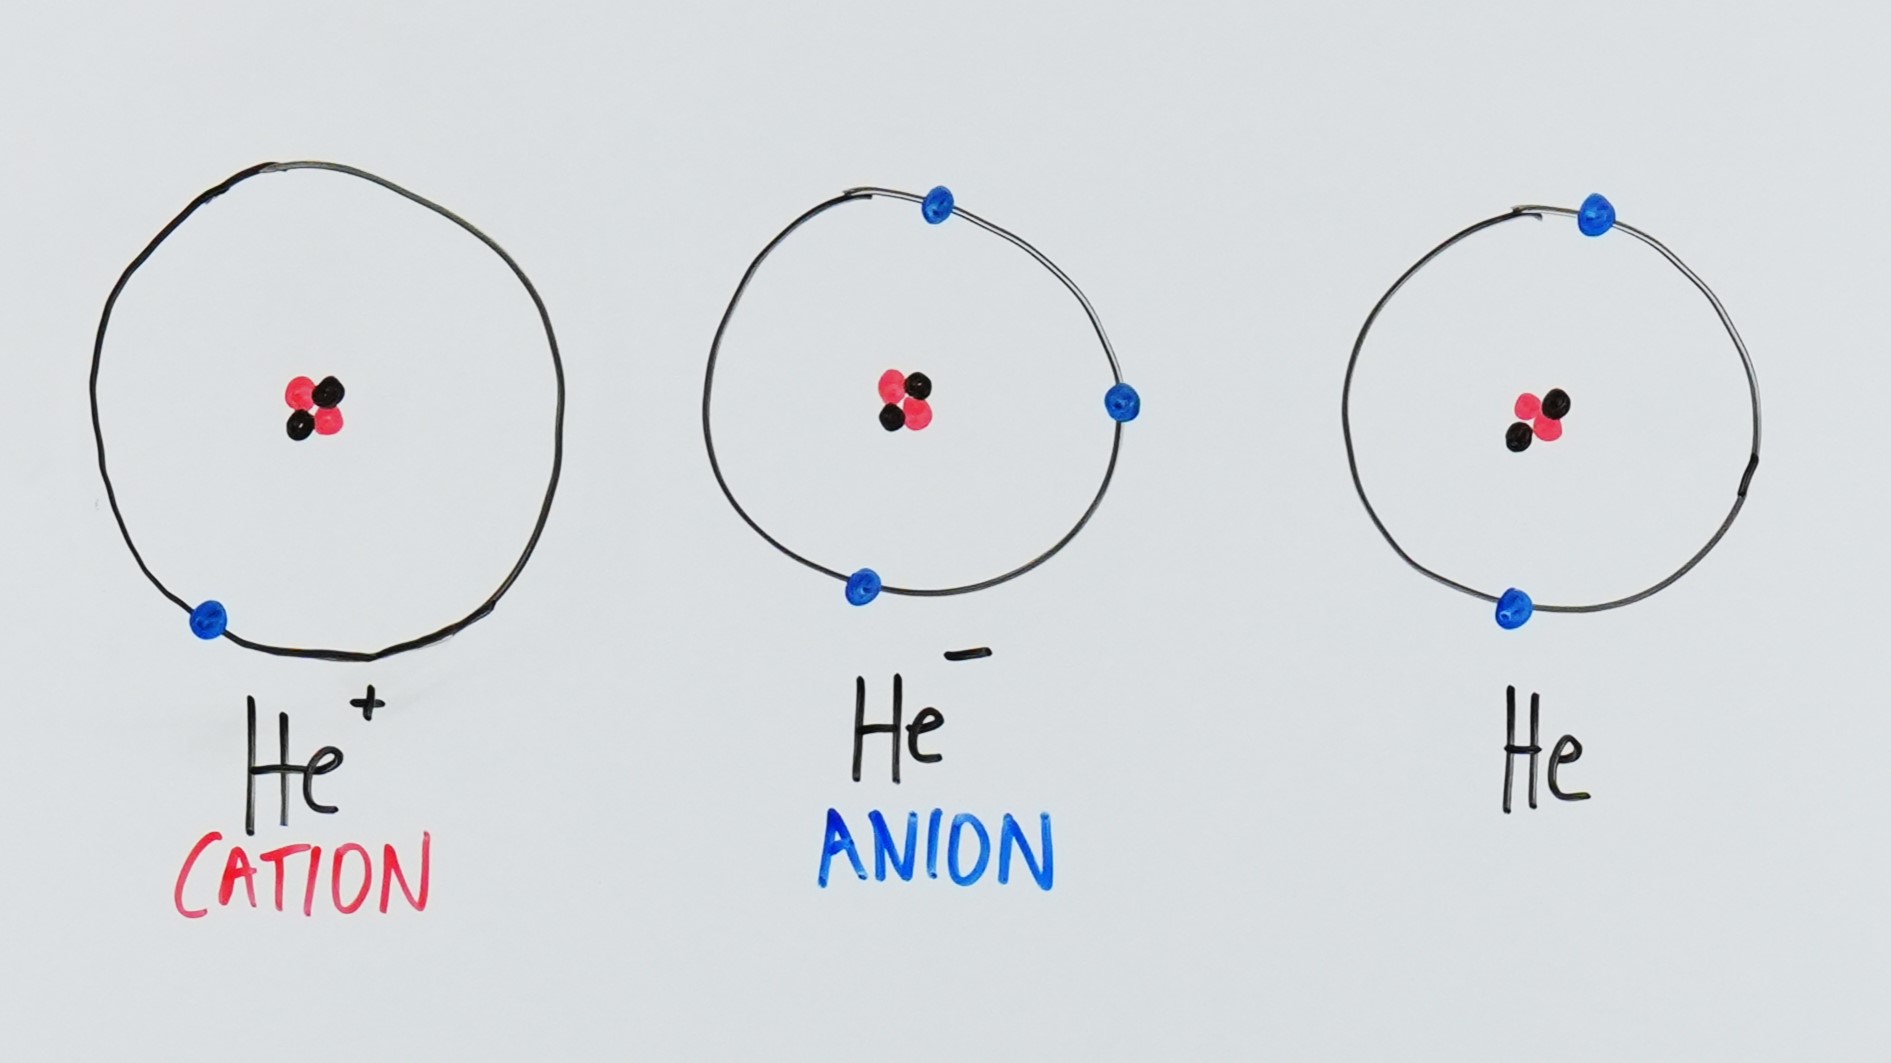 He+
CATION
He−
ANION
He